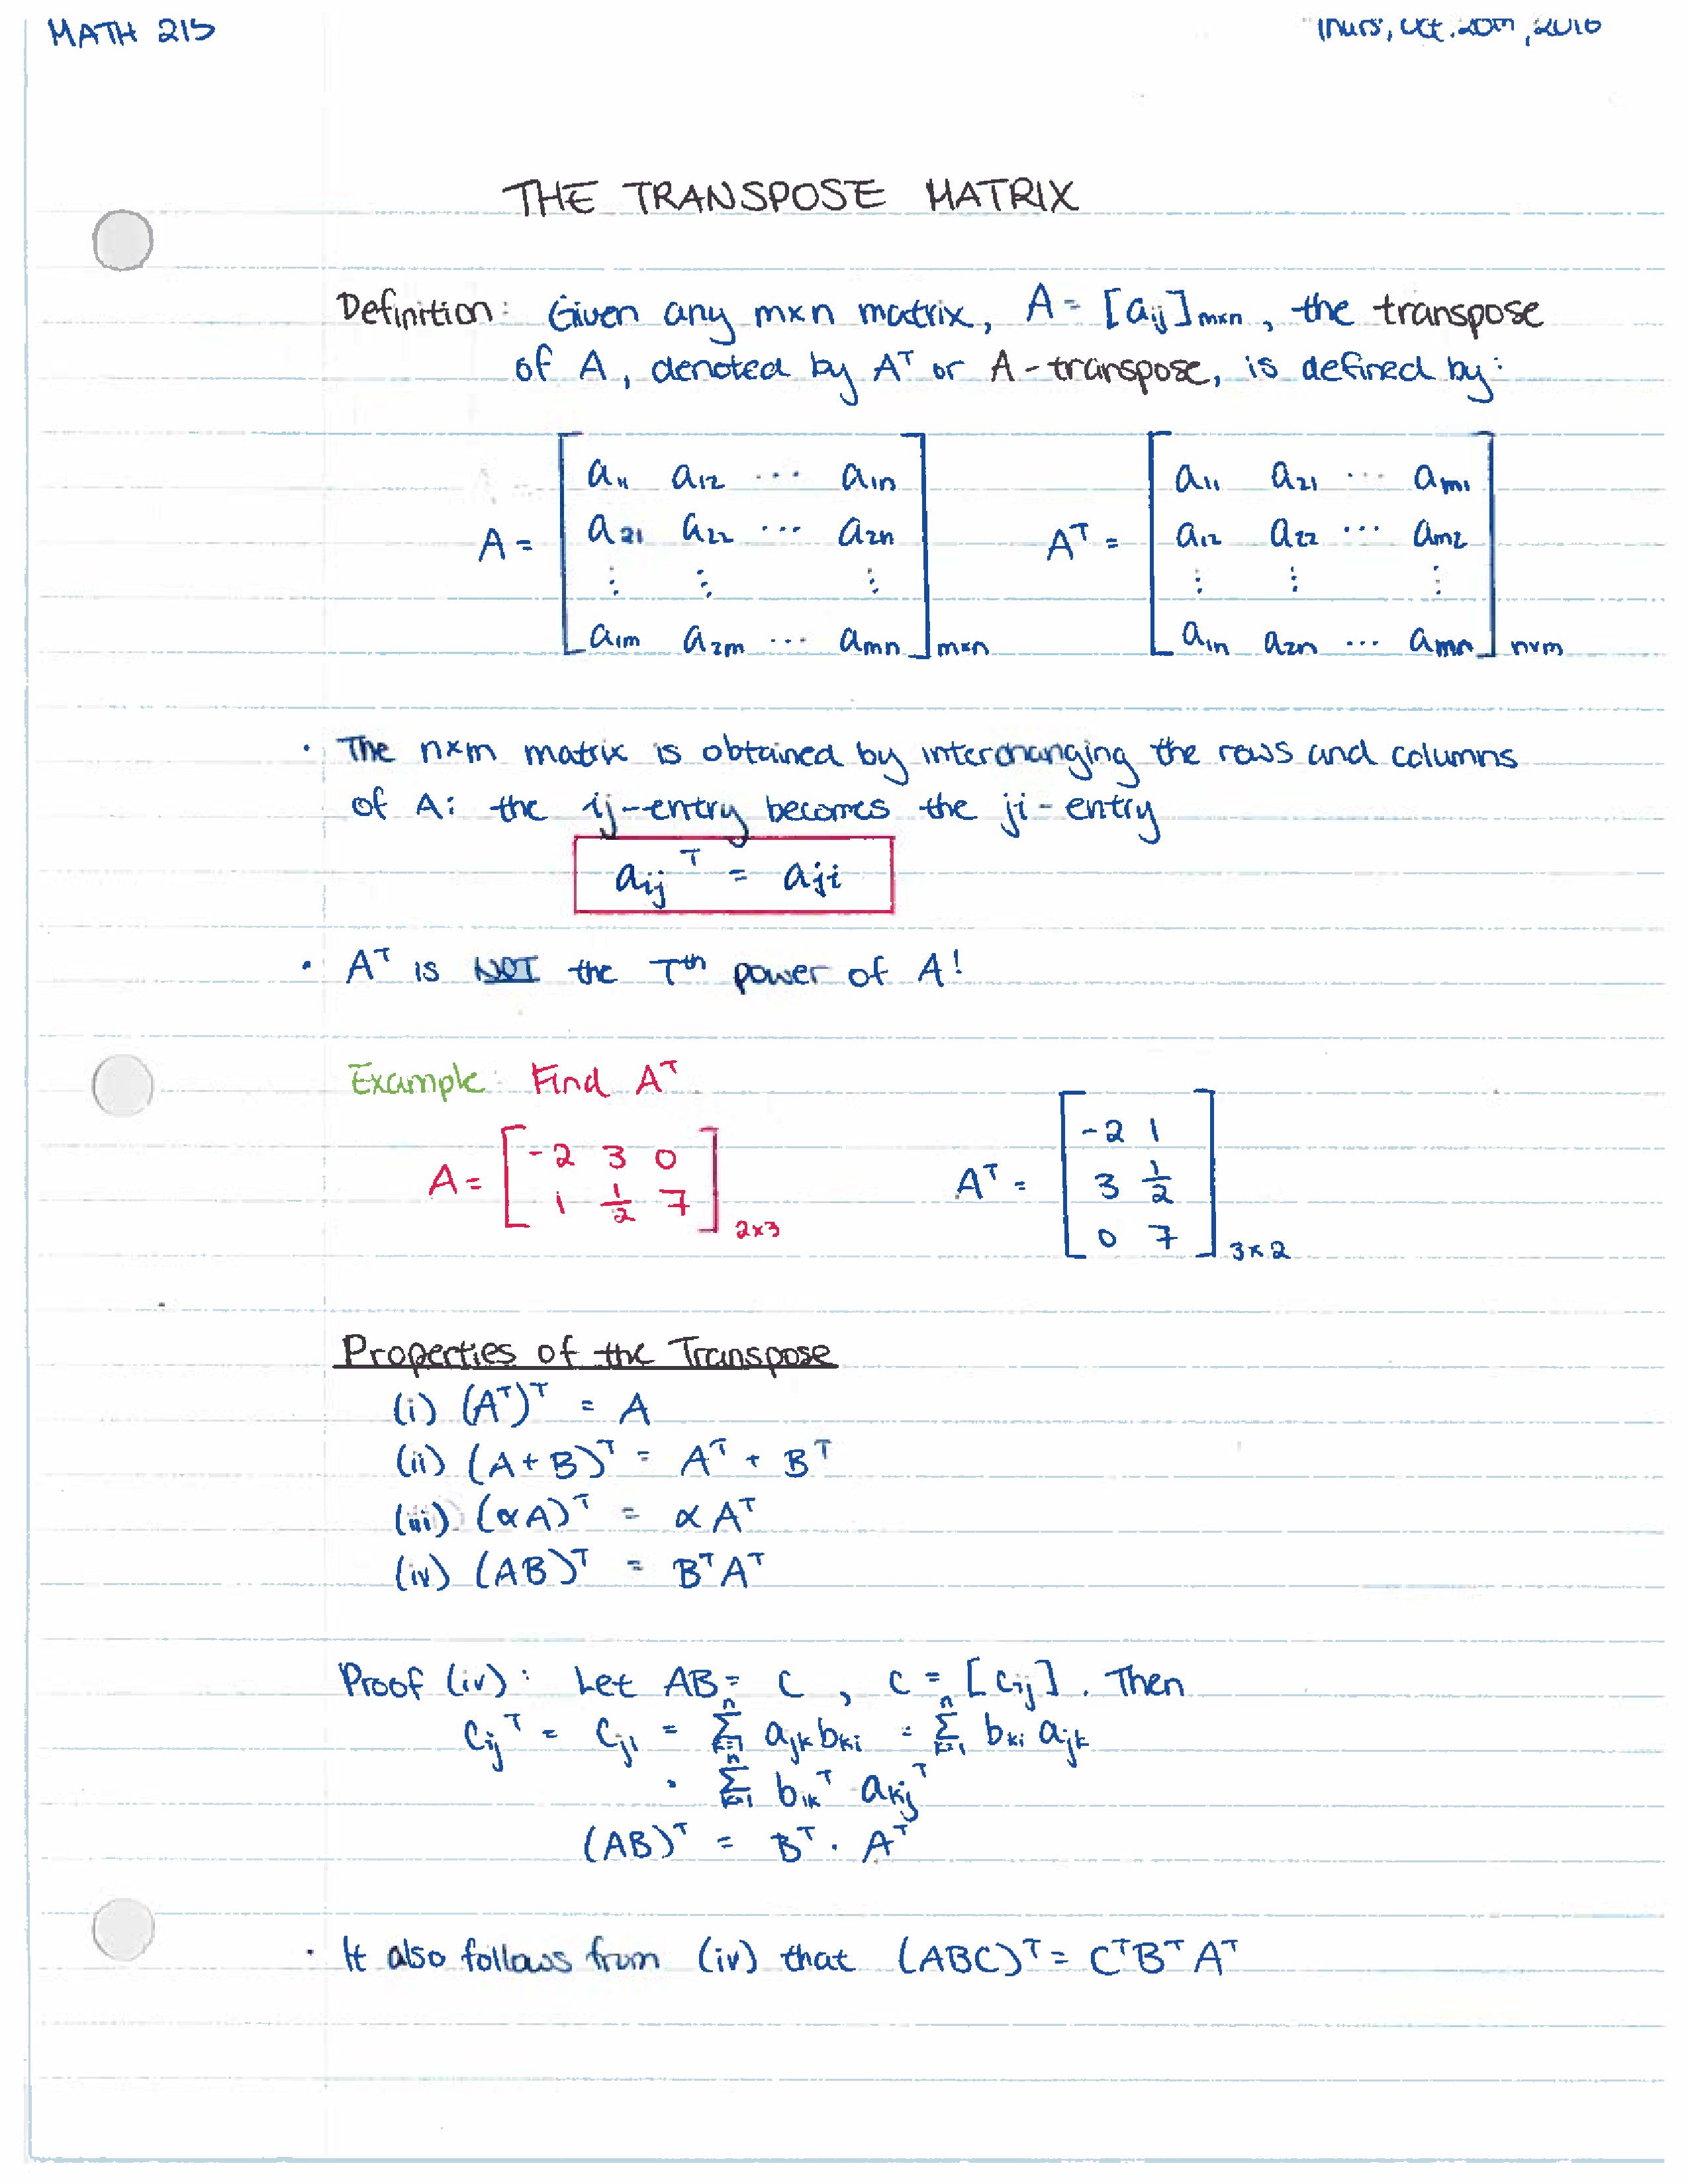 MATH 215
Thurs, Oct. 20th, 2016
THE TRANSPOSE MATRIX
Definition: Given any m×n matrix, A = [aij]m×n, the transpose
of A, denoted by Aᵀ or A-transpose, is defined by:
A = [ a11 a12 ⋯ a1n ; a21 a22 ⋯ a2n ; ⋮ ⋮ ⋮ ; a1m a2m ⋯ amn ] m×n    Aᵀ = [ a11 a21 ⋯ am1 ; a12 a22 ⋯ am2 ; ⋮ ⋮ ⋮ ; a1n a2n ⋯ amn ] n×m
• The n×m matrix is obtained by interchanging the rows and columns
of A: the ij-entry becomes the ji-entry
aijᵀ = aji
• Aᵀ is NOT the Tᵗʰ power of A!
Example: Find Aᵀ
A = [ -2 3 0 ; 1 1/2 7 ] 2×3    Aᵀ = [ -2 1 ; 3 1/2 ; 0 7 ] 3×2
Properties of the Transpose
(i) (Aᵀ)ᵀ = A
(ii) (A+B)ᵀ = Aᵀ + Bᵀ
(iii) (αA)ᵀ = αAᵀ
(iv) (AB)ᵀ = BᵀAᵀ
Proof (iv): Let AB = C, C = [cij]. Then
cijᵀ = cji = Σ(k=1 to n) ajk bki = Σ(k=1 to n) bki ajk
= Σ(k=1 to n) bikᵀ akjᵀ
(AB)ᵀ = Bᵀ · Aᵀ
• It also follows from (iv) that (ABC)ᵀ = CᵀBᵀAᵀ